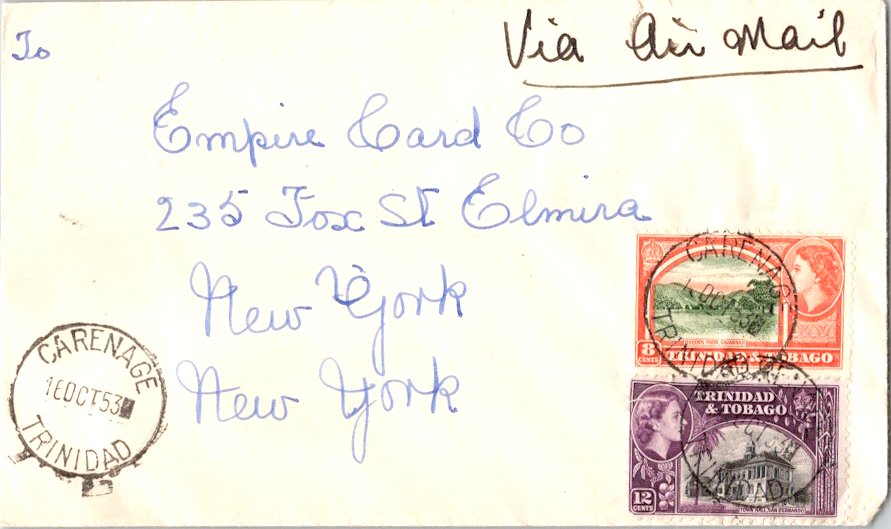 To
Via Air Mail
Empire Card Co
235 Fox St Elmira
New York
New York
CARENAGE
16 OCT 53
TRINIDAD
CARENAGE
OCT 53
TRINIDAD
QUEEN'S PARK SAVANNAH
8
CENTS
TRINIDAD & TOBAGO
TRINIDAD
& TOBAGO
TRINIDAD
12
CENTS
TOWN HALL, SAN FERNANDO